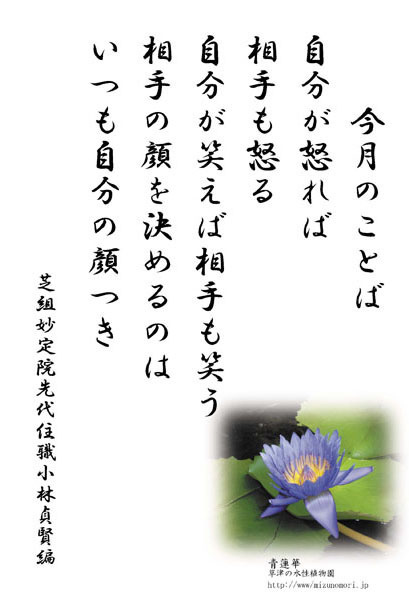 今月のことば
自分が怒れば
相手も怒る
自分が笑えば相手も笑う
相手の顔を決めるのは
いつも自分の顔つき
芝組妙定院先代住職小林貞賢編
青蓮華
草津の水性植物園
http://www.mizunomori.jp